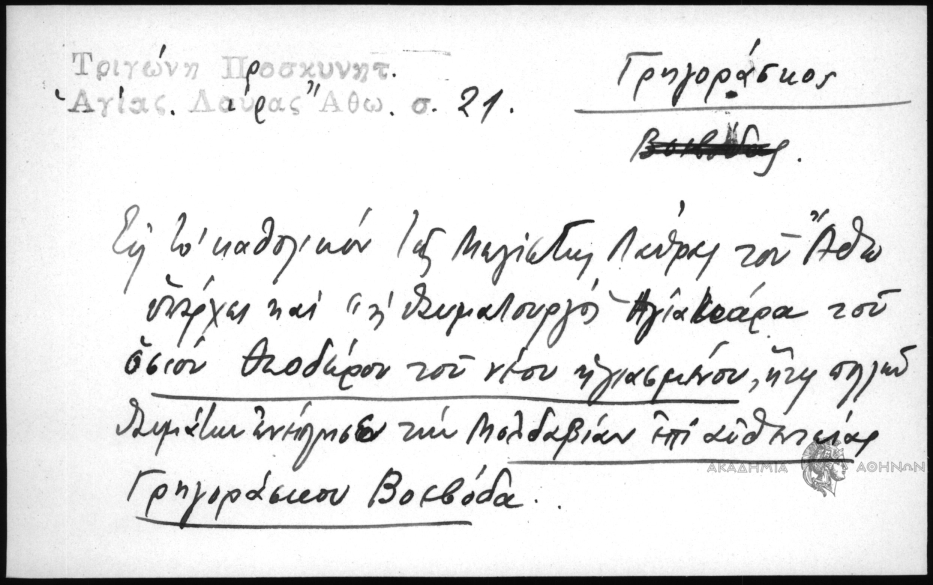 Τριγώνη Προσκυνητ.
Ἁγίας. Λαύρας Ἄθω. σ. 21.
Γρηγοράσκος
Βοεβόδας.
Εἰς τὸ καθολικόν τῆς Μεγίστης Λαύρας τοῦ Ἄθω
ὑπάρχει καὶ "ἡ θαυματουργός Ἁγία κάρα τοῦ
ὁσίου Θεοδώρου τοῦ νέου ἡγιασμένου, ἥτις
θαυμάτων τὴν Μολδαβίαν ἐπὶ αὐθεντείας
Γρηγοράσκου Βοεβόδα.
ΑΚΑΔΗΜΙΑ ΑΘΗΝΩΝ